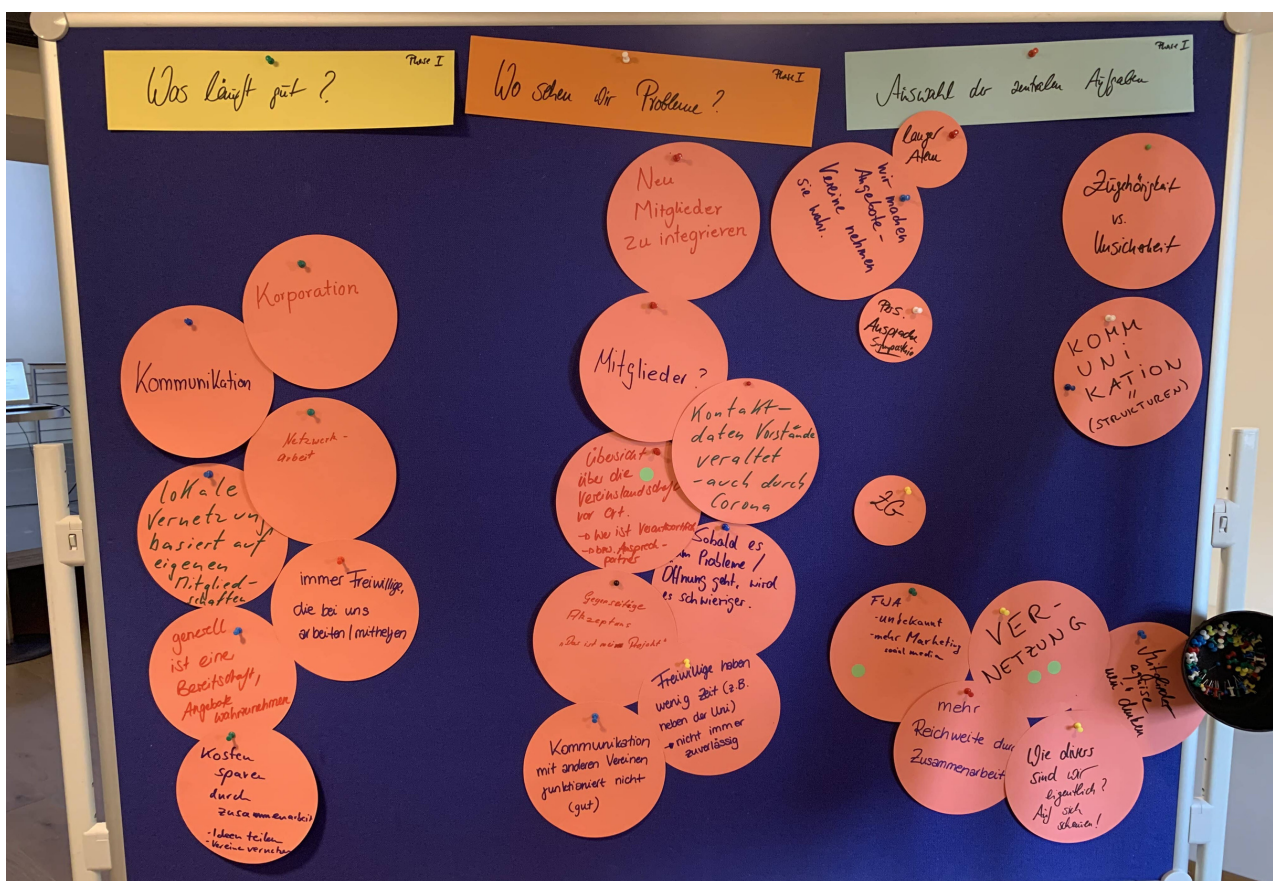 Was läuft gut?
Phase I
Korporation
Kommunikation
Netzwerk-
arbeit
lokale
Vernetzung
basiert auf
eigenen
Mitglied-
schaften
immer Freiwillige,
die bei uns
arbeiten/mithelfen
generell
ist eine
Bereitschaft,
Angebote
wahrzunehmen
Kosten
sparen
durch
zusammenarbeit
-Ideen teilen
-Vereine
Wo sehen wir Probleme?
Phase I
Neu
Mitglieder
zu integrieren
Mitglieder?
Kontakt-
daten Vorstände
veraltet
-auch durch
Corona
Übersicht
über die
Vereinslandschaft
vor Ort.
→ Wer ist
→ bzw. Ansprech-
partner
Sobald es
um Probleme/
Öffnung geht, wird
es schwieriger.
Gegenseitige
Akzeptanz
"Das ist mein Projekt"
Freiwillige haben
wenig Zeit (z.B.
neben der Uni)
→ nicht immer
zuverlässig
Kommunikation
mit anderen Vereinen
funktioniert nicht
(gut)
Auswahl der zentralen Aufgaben
Phase I
langer
Atem
Wir machen
Angebote-
Vereine nehmen
sie wahr.
Zugehörigkeit
vs.
Unsicherheit
Pos.
Ansprache
Sympathie
KOMM
UNI
KATION
"
(STRUKTUREN)
2G
FJA
-unbekannt
-mehr Marketing
social media
VER-
NETZUNG
Mitglieder
denken
mehr
Reichweite durch
Zusammenarbeit
Wie divers
sind wir
eigentlich?
Auf sich
schauen!